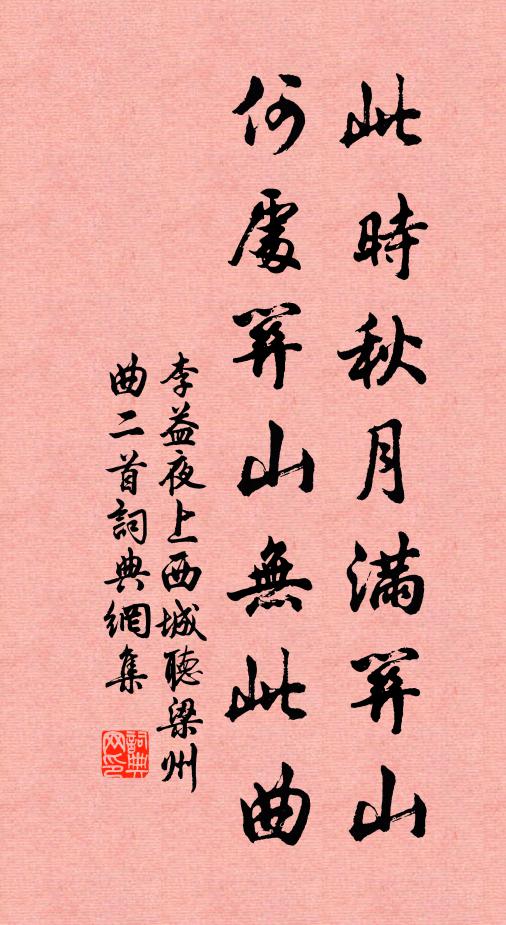 此時秋月滿關山
何處關山無此曲
李益夜上西城聽梁州
曲二首詞典網集
詞典
网印